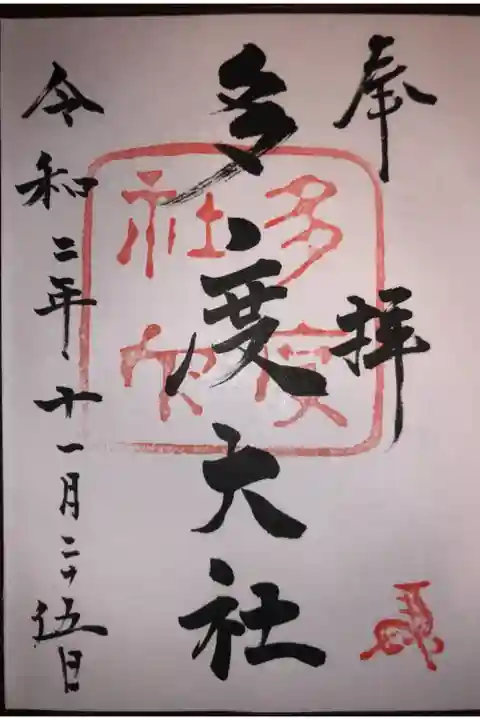 奉拝
多度大社
多度
社印
令和二年十一月二十伍日